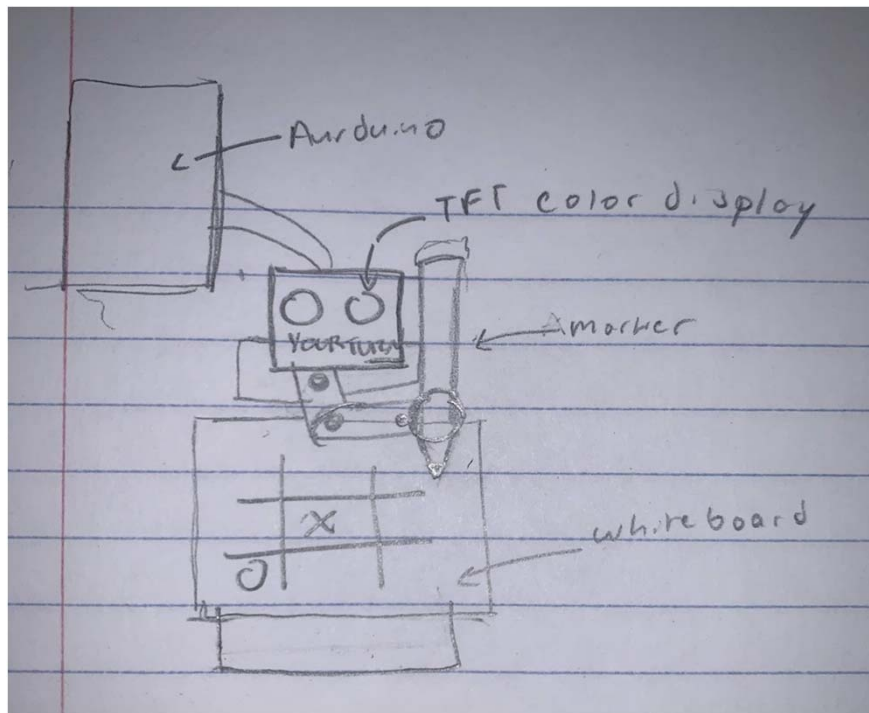 Aurduino
TFT color display
YOUR TURN
A marker
X
whiteboard
O